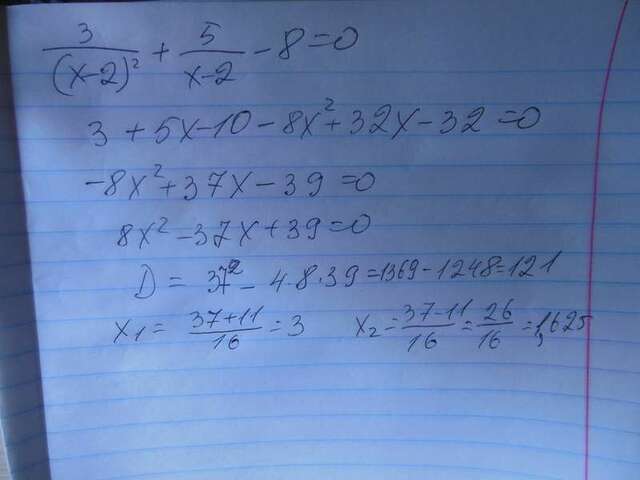 3/(x-2)² + 5/(x-2) - 8 = 0
3 + 5x - 10 - 8x² + 32x - 32 = 0
-8x² + 37x - 39 = 0
8x² - 37x + 39 = 0
D = 37² - 4·8·39 = 1369 - 1248 = 121
x₁ = (37+11)/16 = 3 x₂ = (37-11)/16 = 26/16 = 1,625